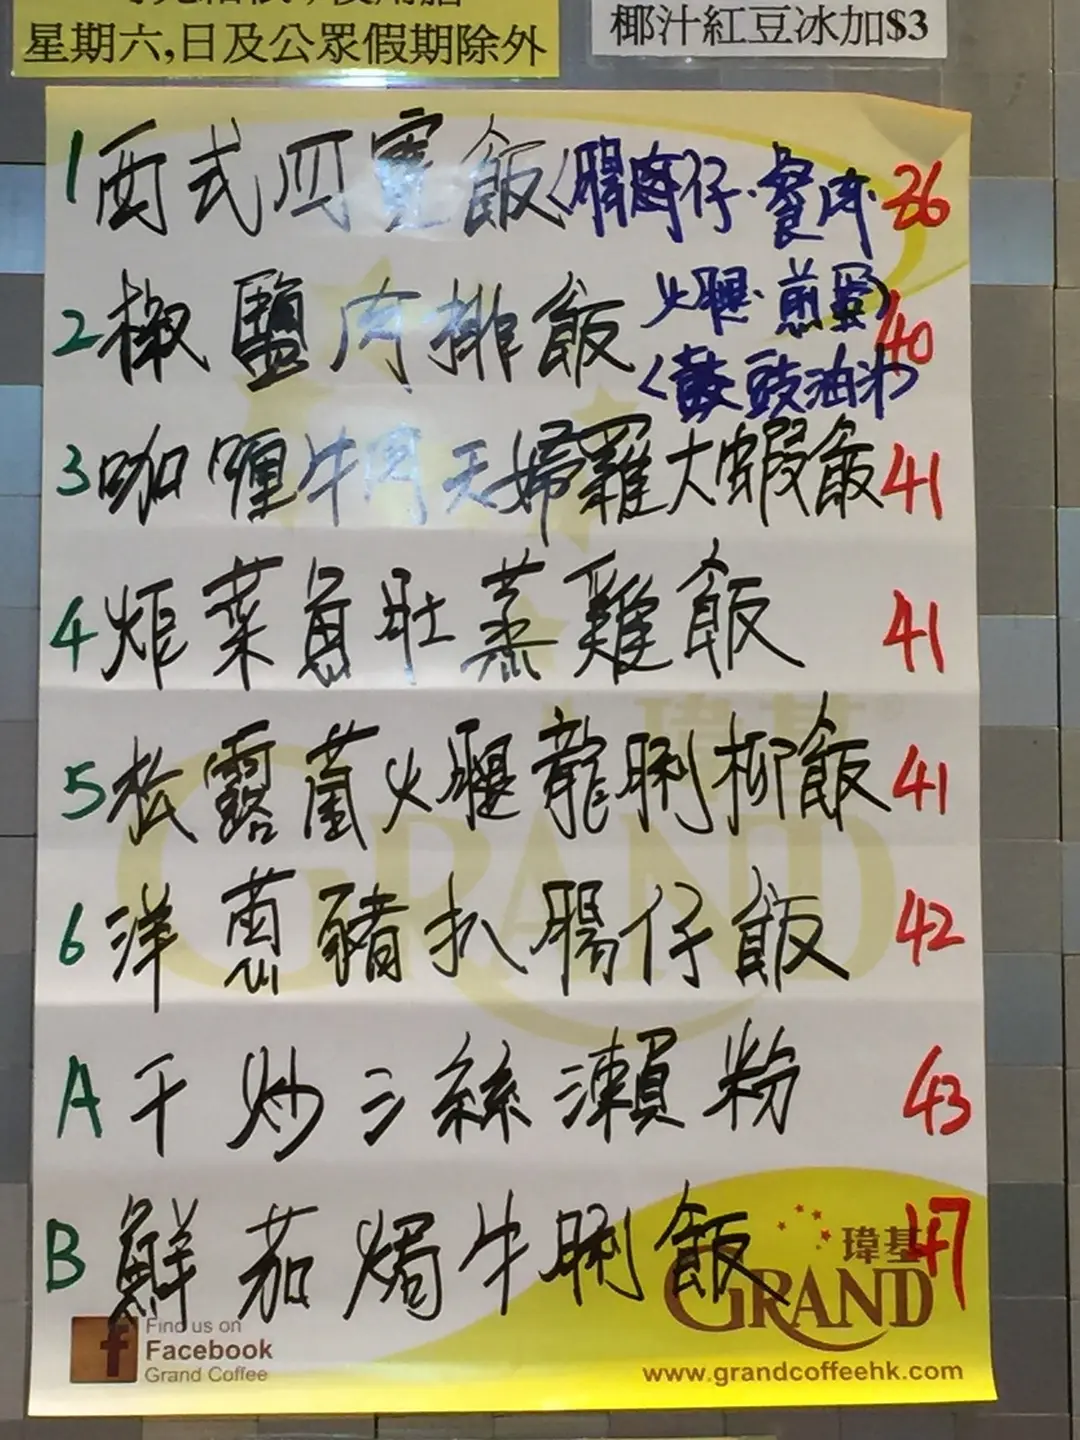 星期六,日及公眾假期除外
椰汁紅豆冰加$3
1 西式四寶飯〈腸仔·餐肉· 36
火腿·煎蛋〉
2 椒鹽肉排飯 40
〈豉油汁〉
3 咖喱牛肉天婦羅大蝦飯 41
4 炸菜魚肚蒸雞飯 41
5 松露菌火腿龍脷柳飯 41
6 洋蔥豬扒腸仔飯 42
A 干炒三絲瀨粉 43
B 鮮茄焗牛脷飯 47
瑋基®
GRAND
瑋基
GRAND
Find us on
Facebook
Grand Coffee
www.grandcoffeehk.com